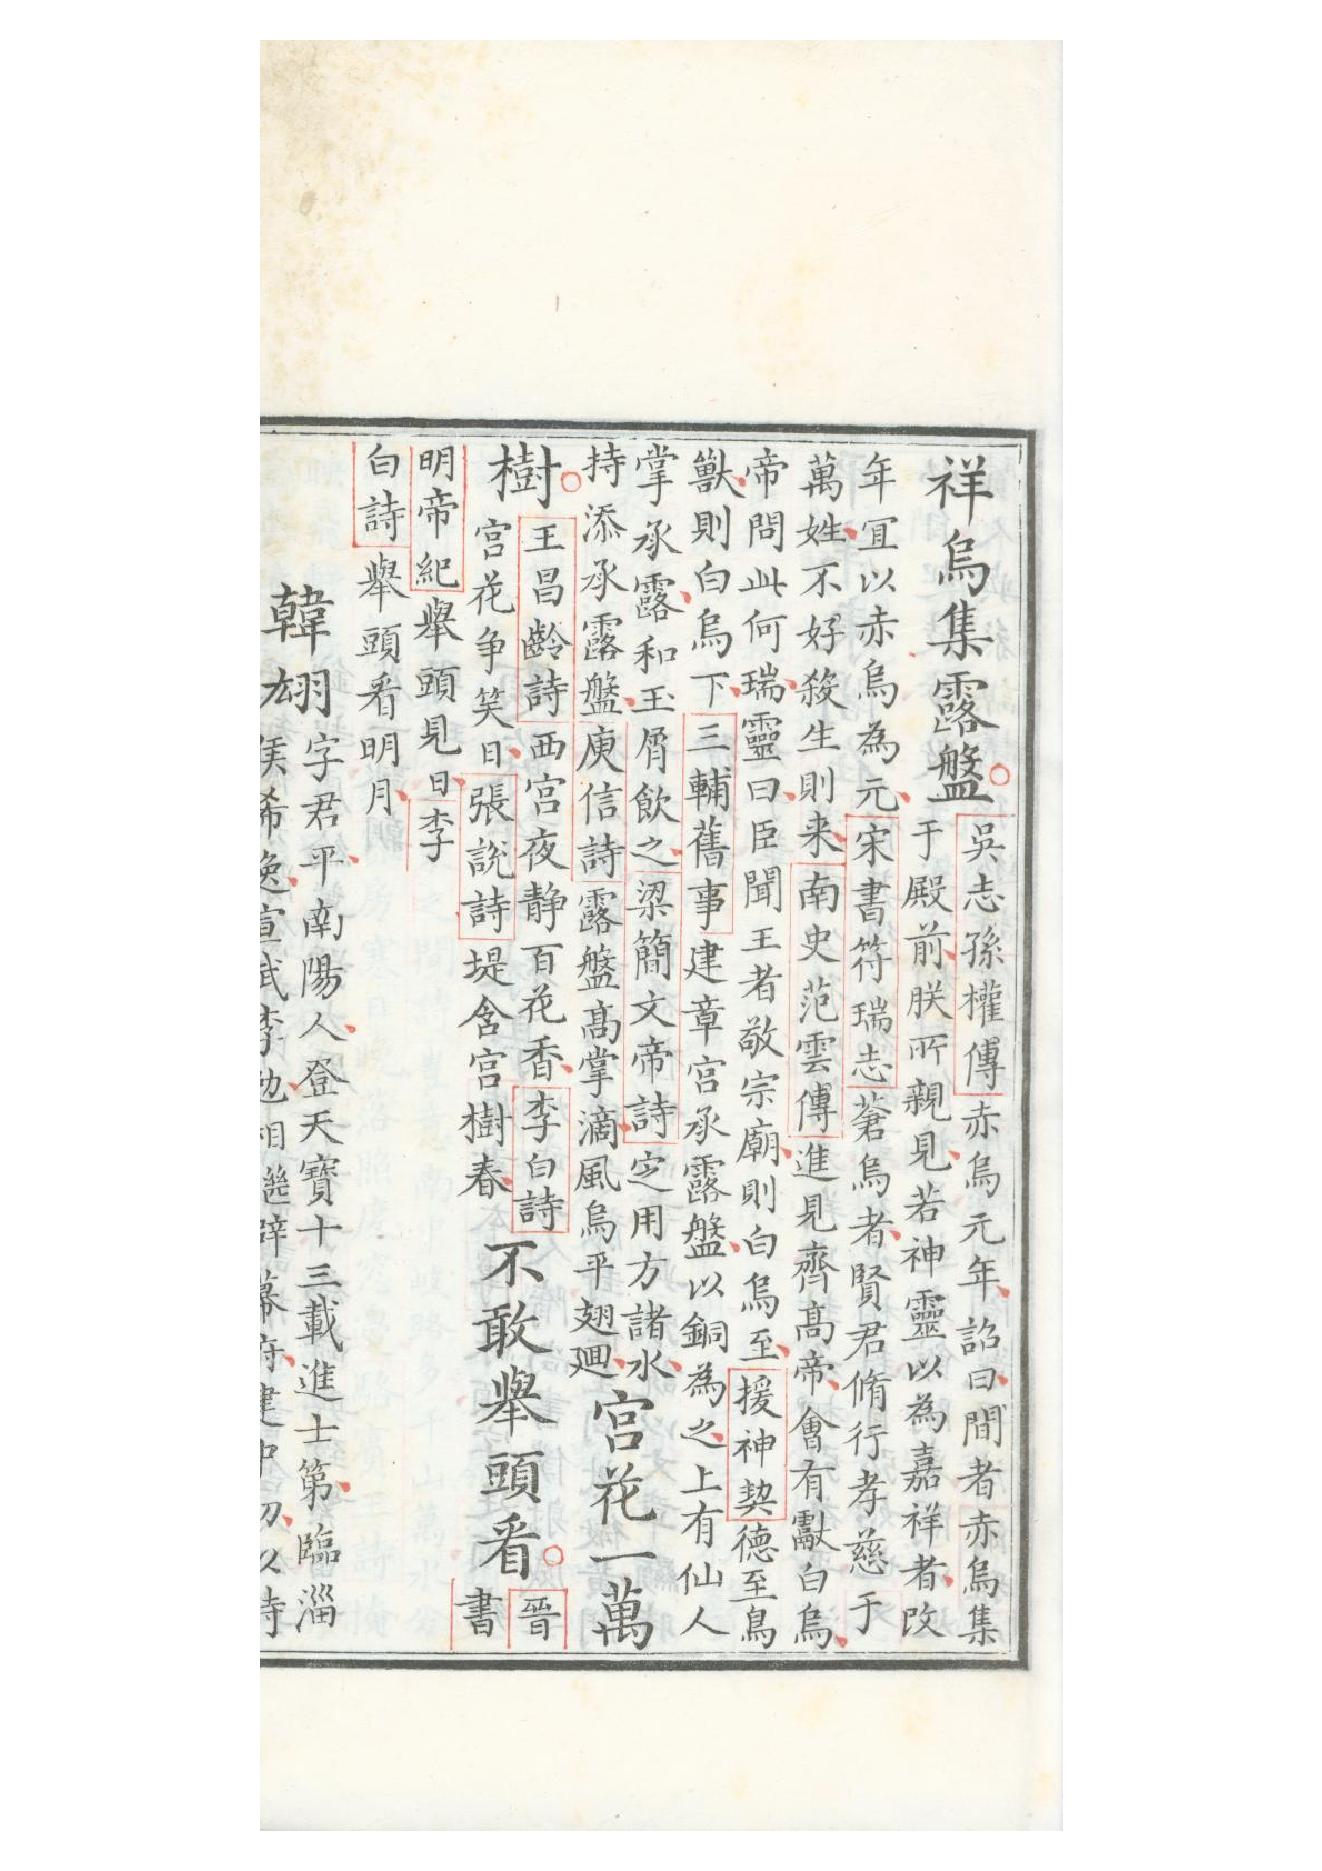 祥烏集露盤
吳志孫權傳赤烏元年詔曰間者赤烏集
于殿前朕所親見若神靈以為嘉祥者改
年宜以赤烏為元宋書符瑞志蒼烏者賢君脩行孝慈于
萬姓不好殺生則来南史范雲傳進見齊高帝會有獻白烏
帝問此何瑞靈曰臣聞王者敬宗廟則白烏至援神契德至鳥
獸則白烏下三輔舊事建章宮承露盤以銅為之上有仙人
掌承露和玉屑飲之梁簡文帝詩定用方諸水
持添承露盤庾信詩露盤高掌滴風烏平翅廻
宮花一萬
樹
王昌齡詩西宮夜静百花香李白詩
宮花争笑日張說詩堤含宮樹春
不敢舉頭看
晉
書
明帝紀舉頭見日李
白詩舉頭看明月
韓翃
字君平南陽人登天寶十三載進士第臨淄
侯希逸宣武李勉相繼辟幕府建中初以詩